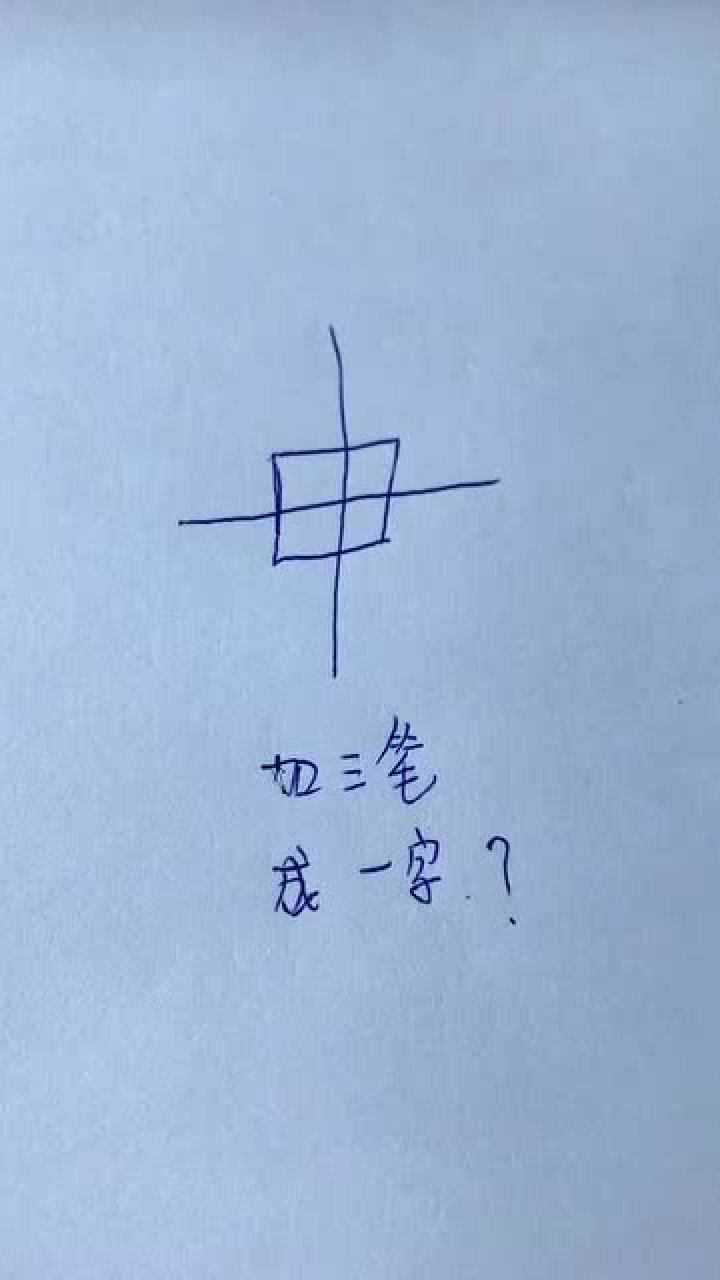 加三笔
成一字.?